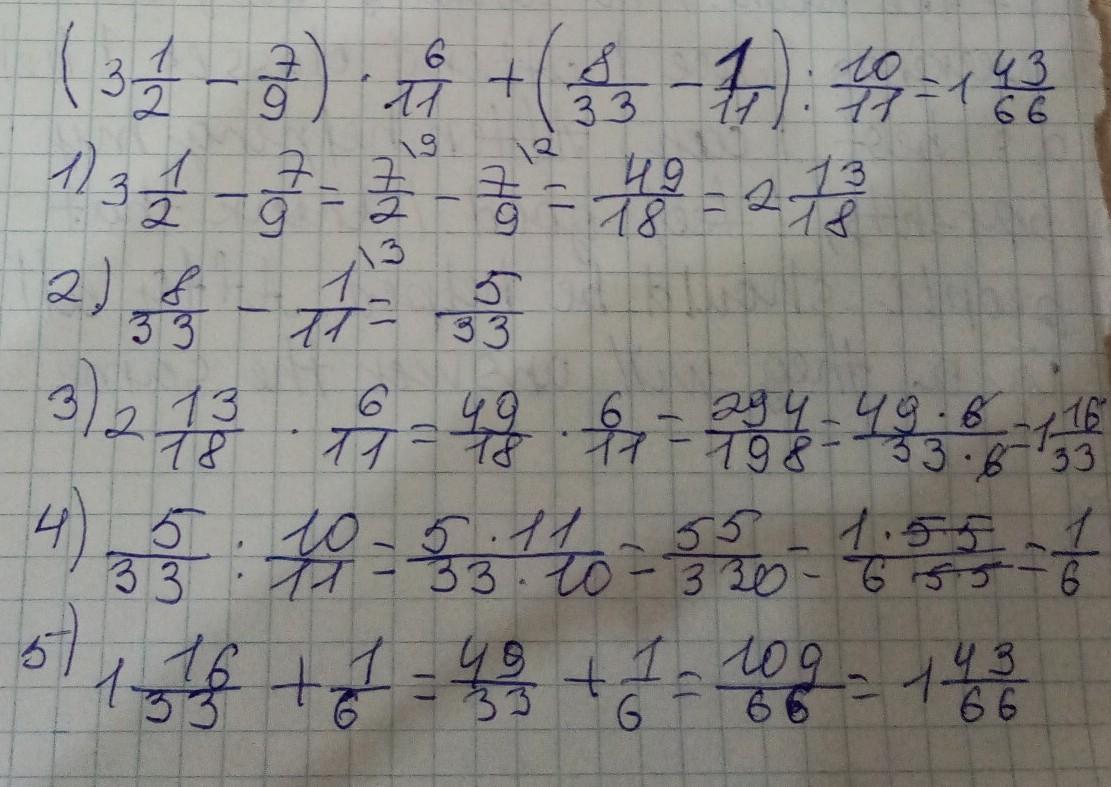 (3 1/2 - 7/9) · 6/11 + (8/33 - 1/11) : 10/11 = 1 43/66
1) 3 1/2 - 7/9 = 7/2 \9 - 7/9 \2 = 49/18 = 2 13/18
2) 8/33 - 1/11 \3 = 5/33
3) 2 13/18 · 6/11 = 49/18 · 6/11 = 294/198 = 49·6/33·6 = 1 16/33
4) 5/33 : 10/11 = 5·11/33·10 = 55/330 = 1·55/6 55 = 1/6
5) 1 16/33 + 1/6 = 49/33 + 1/6 = 109/66 = 1 43/66